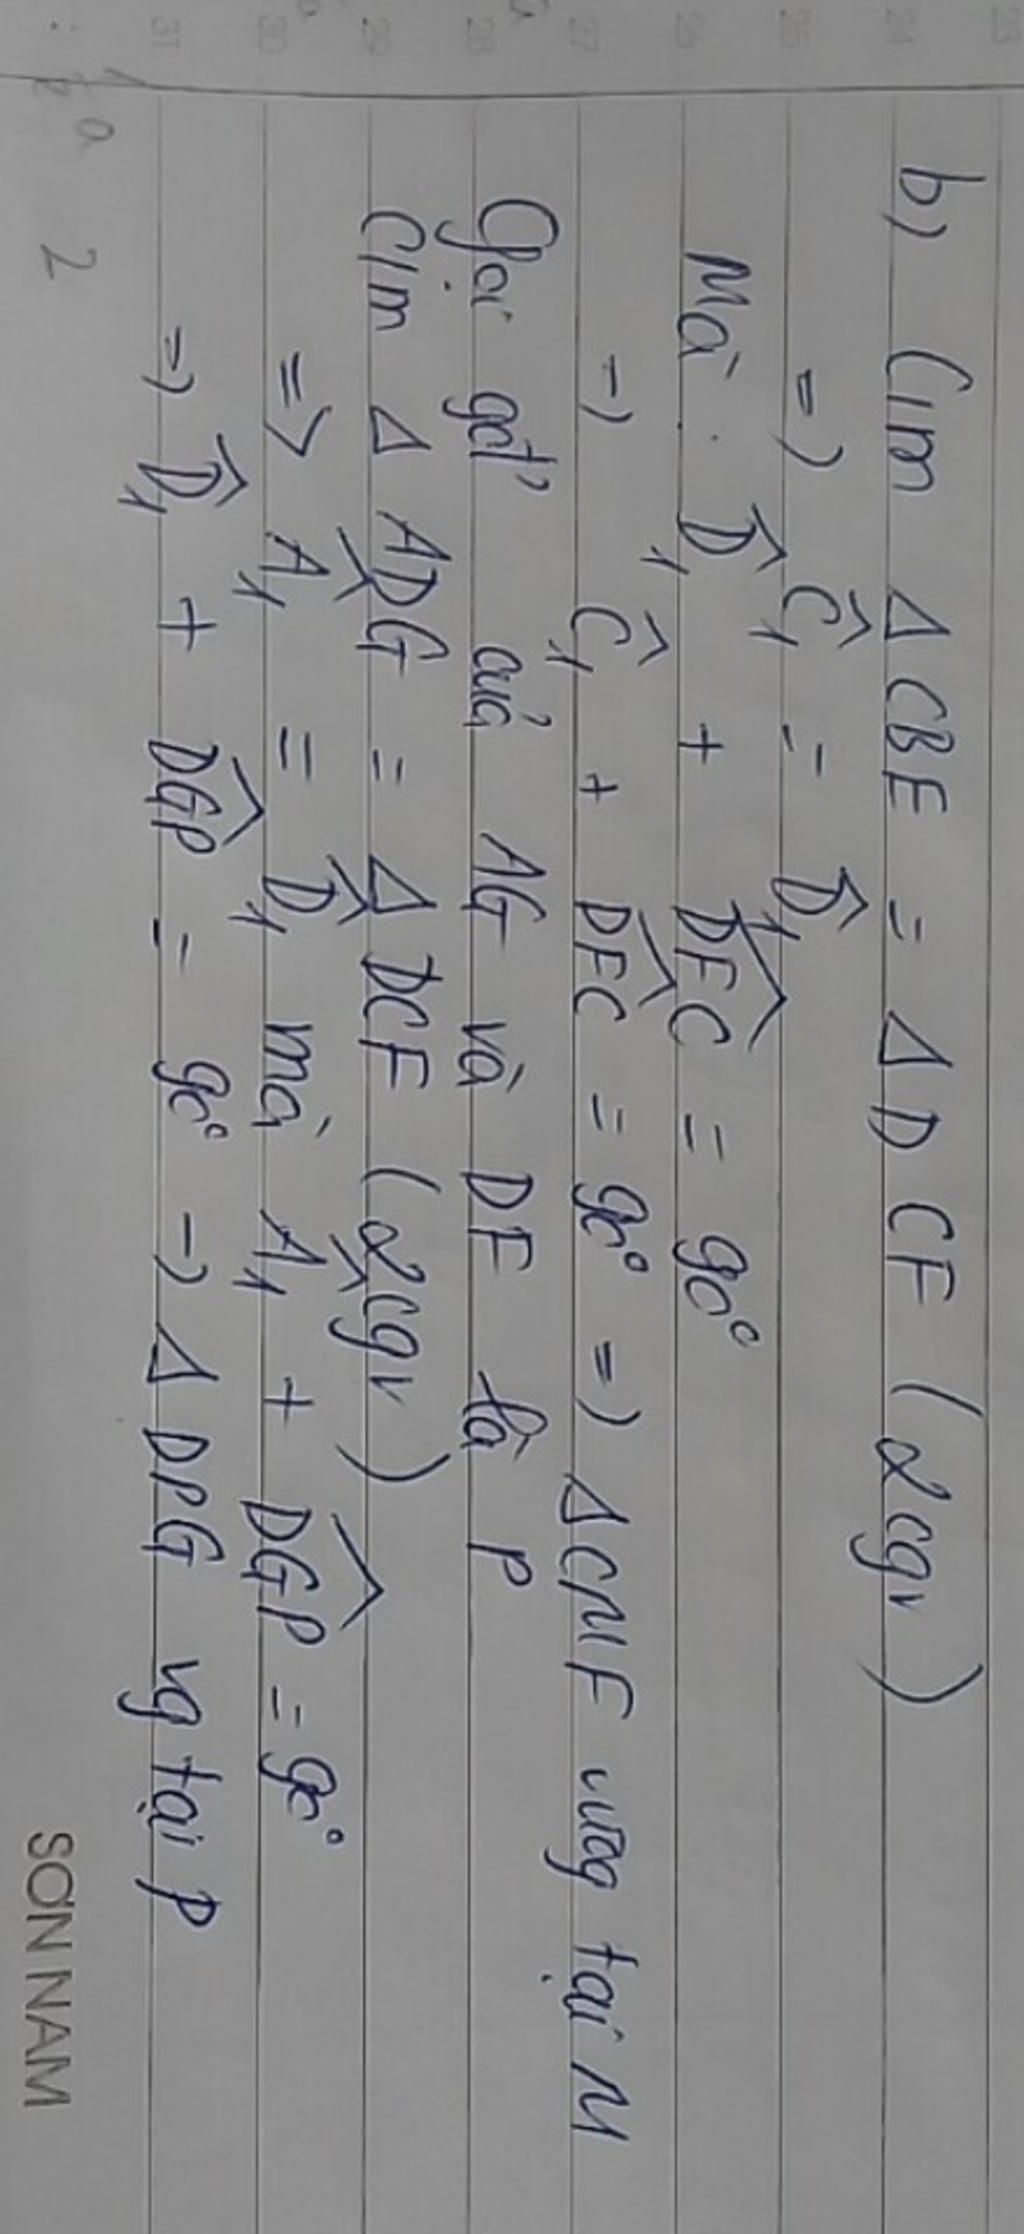 b) C/m Δ CBE = Δ DCF (2cgv)
=> Ĉ₁ = D̂₁
Mà D̂₁ + DFC = 90°
=> Ĉ₁ + DFC = 90° => Δ CMF vuôg tại M
Gọi gđ' của AG và DF là P
C/m Δ ADG = Δ DCF (2cgv)
=> Â₁ = D̂₁ mà Â₁ + DGP = 90°
=> D̂₁ + DGP = 90° => Δ DPG vg tại P
SƠN NAM
23
24
25
26
27
28
29
30
31